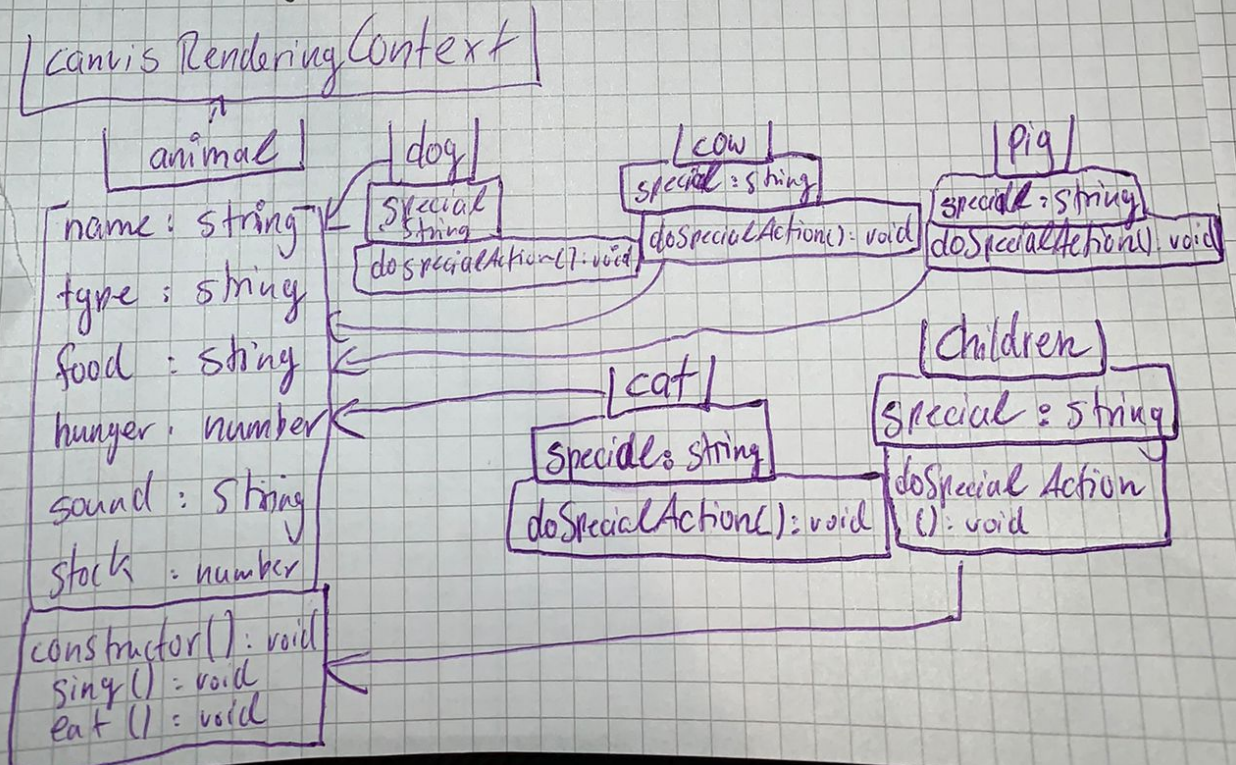 canvis RenderingContext
animal
name : string
type : string
food : string
hunger : number
sound : string
stock : number
constructor() : void
sing() : void
eat () : void
dog
special
string
doSpecialAction() : void
cow
special : string
doSpecialAction() : void
Pig
special : string
doSpecialAction() : void
cat
special : string
doSpecialAction() : void
Children
special : string
doSpecial Action
() : void